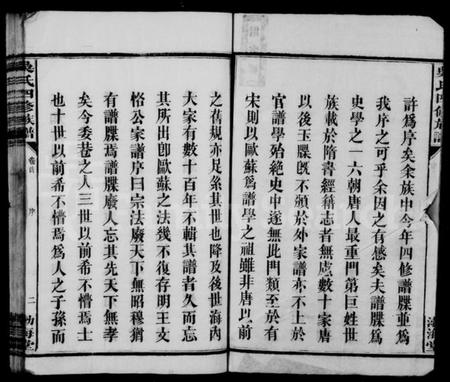 吳氏四修族譜
許爲序矣余族中今年四修譜牒並爲
我序之可乎余因之有感矣夫譜牒爲
史學之一六朝唐人最重門第巨姓世
族載於隋書經籍志者無慮數十家唐
以後玉牒既不頒於外家譜亦不上於
官譜學殆絕史中遂無此門類至於有
宋則以歐蘇爲譜學之祖雖非唐以前
之舊規亦足系其世也降及後世海內
大家有數十百年不輯其譜者久而忘
其所出卽歐蘇之法幾不復存明王文
恪公家譜序曰宗法廢天下無昭穆猶
有譜牒焉譜牒廢人忘其先天下無孝
矣今委巷之人三世以前希不懵焉士
也十世以前希不懵焉爲人之子孫而
吳氏四修族譜
卷首
序
二